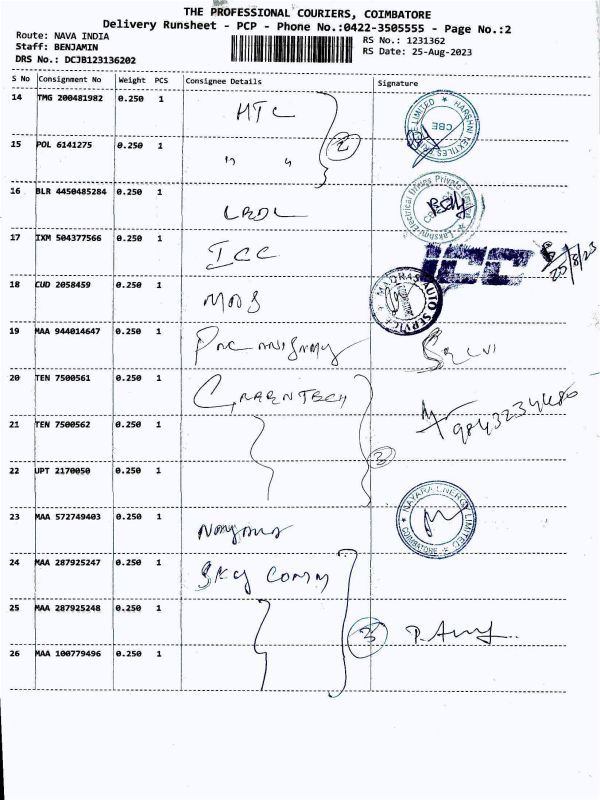 THE PROFESSIONAL COURIERS, COIMBATORE
Delivery Runsheet - PCP - Phone No.:0422-3505555 - Page No.:2
Route: NAVA INDIA
Staff: BENJAMIN
DRS No.: DCJB123136202
RS No.: 1231362
RS Date: 25-Aug-2023
S No Consignment No Weight PCS Consignee Details Signature
14 TMG 200481982 0.250 1 HTC 2 HARSHNI TEXTILES LIMITED CBE
15 POL 6141275 0.250 1 " "
16 BLR 4450485284 0.250 1 LEDL Lakshmi Electrical Drives Private Limited
17 IXM 504377566 0.250 1 ICC ICC 25/8/23
18 CUD 2058459 0.250 1 MADS MADRAS AUTO SERVICE
19 MAA 944014647 0.250 1 Selvi
20 TEN 7500561 0.250 1 GREENTECH 3
21 TEN 7500562 0.250 1
22 UPT 2170050 0.250 1
23 MAA 572749403 0.250 1 Nayara NAYARA ENERGY LIMITED COIMBATORE
24 MAA 287925247 0.250 1 SKY COMM 3
25 MAA 287925248 0.250 1
26 MAA 100779496 0.250 1